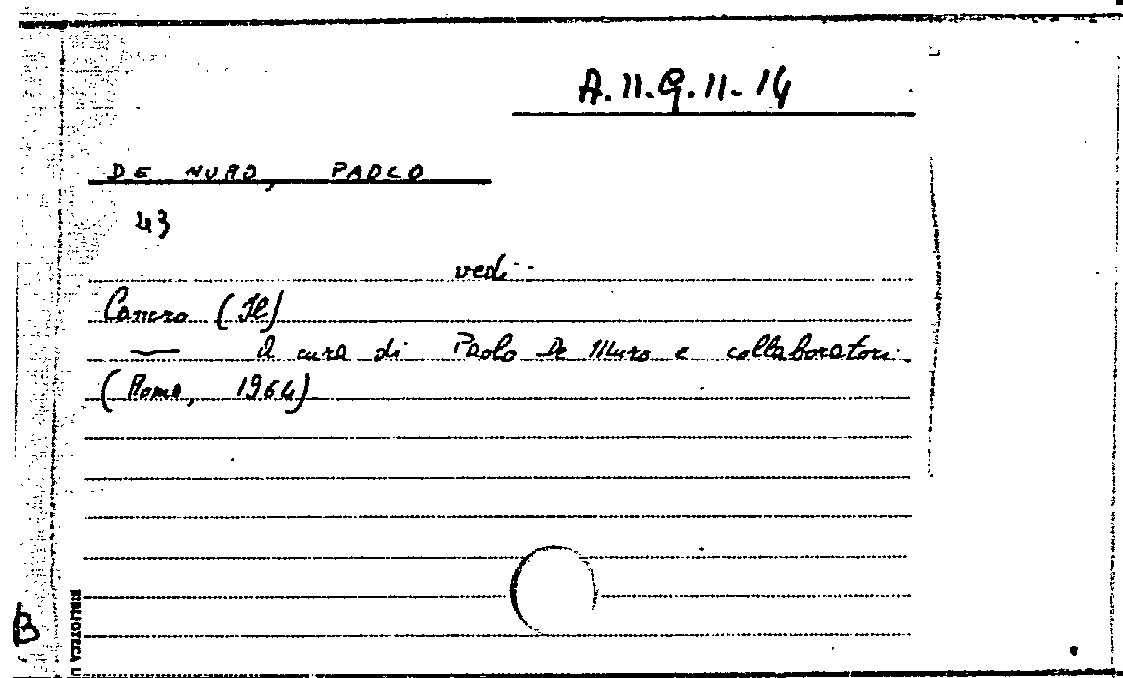 A.11.G.11-14
DE MURO, PAOLO
43
vedi:
Cancro (Il)
— A cura di Paolo De Muro e collaboratori.
(Roma, 1964)
B
BIBLIOTECA